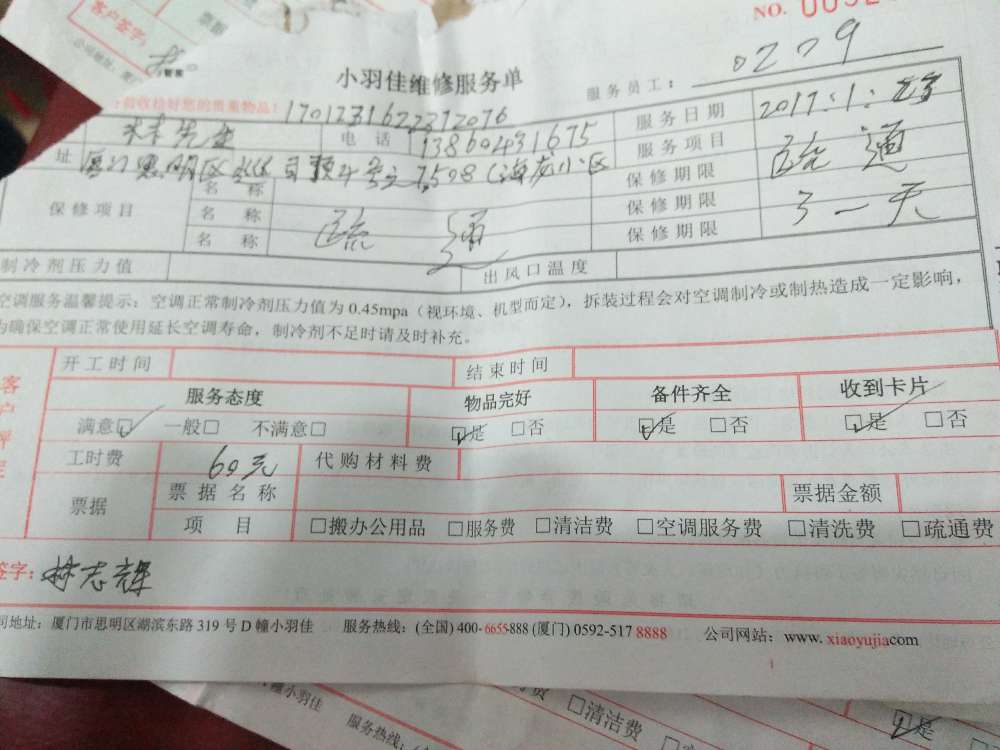 客户签字:
NO. 0092
小羽佳维修服务单
服务员工: 0279
验收检好您的贵重物品! 17012316222312076
林先生 电 话 13860431675 服务日期 2017.1.
址 厦门思明区 司顶4号之 508(海龙小区 服务项目 疏通
保修项目 名 称 保修期限
名 称 疏 通 保修期限 一天
名 称 保修期限
制冷剂压力值 出风口温度
空调服务温馨提示: 空调正常制冷剂压力值为 0.45mpa(视环境、机型而定), 拆装过程会对空调制冷或制热造成一定影响,
为确保空调正常使用延长空调寿命, 制冷剂不足时请及时补充。
开工时间 结束时间
服务态度 物品完好 备件齐全 收到卡片
满意☑ 一般□ 不满意□ ☑是 □否 ☑是 □否 ☑是 □否
工时费 60元 代购材料费
票据 票据名称 票据金额
项 目 □搬办公用品 □服务费 □清洁费 □空调服务费 □清洗费 □疏通费
签字: 林志辉
司地址: 厦门市思明区湖滨东路 319 号 D 幢小羽佳 服务热线: (全国) 400-6655-888 (厦门) 0592-517 8888 公司网站: www. xiaoyujiacom
幢小羽佳 服务热线: □清洁费 ☑是